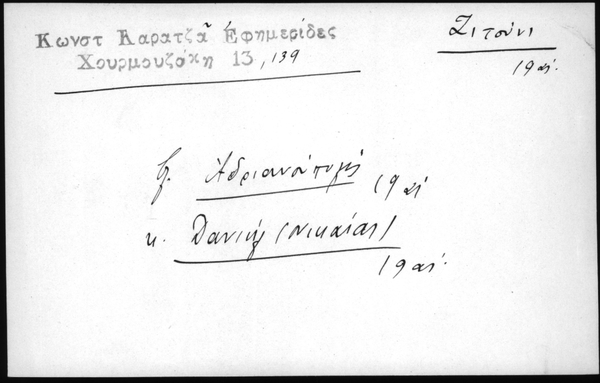 Κωνστ Καρατζᾶ Ἐφημερίδες
Χουρμουζάκη 13, 139
Ζιτούνι
19 αἰ.
β. Ἀδριανούπολις 19 αἰ
κ. Δανιήλ (Νικαίας)
19 αἰ.